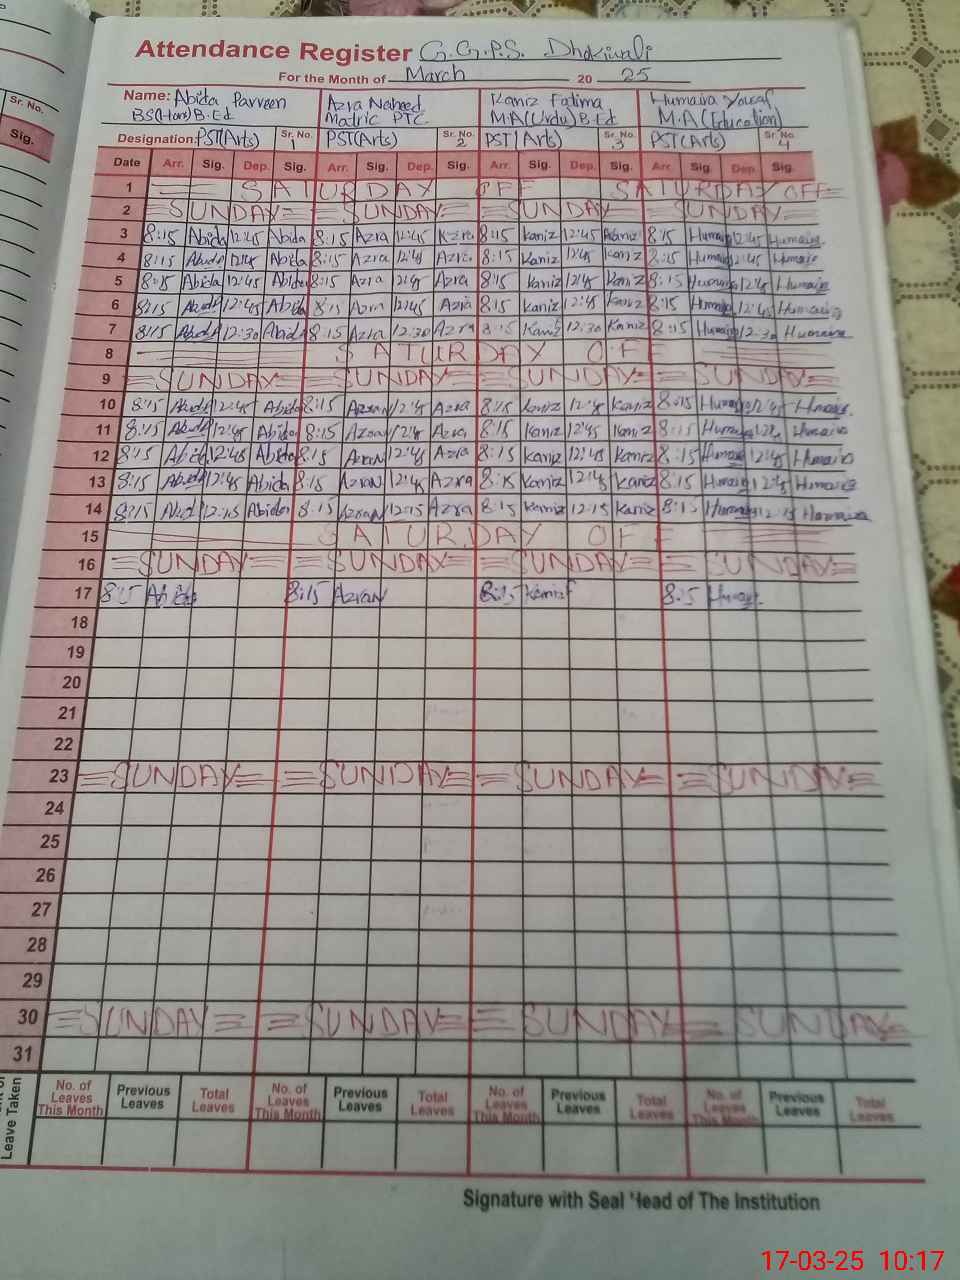 Attendance Register G.G.P.S. Dhokiwali
For the Month of March 2025
Name: Abida Parveen Azra Naheed Kaniz Fatima Humaira Yousaf
BS(Hons) B.Ed Matric PTC M.A(Urdu) B.Ed M.A(Education)
Designation: PST(Arts) Sr. No. 1 PST(Arts) Sr. No. 2 PST(Arts) Sr. No. 3 PST(Arts) Sr. No. 4
Date Arr. Sig. Dep. Sig. Arr. Sig. Dep. Sig. Arr. Sig. Dep. Sig. Arr. Sig. Dep. Sig.
1 SATURDAY OFF SATURDAY OFF
2 SUNDAY SUNDAY SUNDAY SUNDAY
3 8:15 Abida 12:45 Abida 8:15 Azra 12:45 Azra 8:15 Kaniz 12:45 Kaniz 8:15 Humaira 12:45 Humaira
4 8:15 Abida 12:45 Abida 8:15 Azra 12:45 Azra 8:15 Kaniz 12:45 Kaniz 8:15 Humaira 12:45 Humaira
5 8:15 Abida 12:45 Abida 8:15 Azra 12:45 Azra 8:15 Kaniz 12:45 Kaniz 8:15 Humaira 12:45 Humaira
6 8:15 Abida 12:45 Abida 8:15 Azra 12:45 Azra 8:15 Kaniz 12:45 Kaniz 8:15 Humaira 12:45 Humaira
7 8:15 Abida 12:30 Abida 8:15 Azra 12:30 Azra 8:15 Kaniz 12:30 Kaniz 8:15 Humaira 12:30 Humaira
8 SATURDAY OFF
9 SUNDAY SUNDAY SUNDAY SUNDAY
10 8:15 Abida 12:45 Abida 8:15 Azran 12:45 Azra 8:15 Kaniz 12:45 Kaniz 8:15 Humaira 12:45 Hmaira
11 8:15 Abida 12:45 Abida 8:15 Azran 12:45 Azra 8:15 Kaniz 12:45 Kaniz 8:15 Humaira Humaira
12 8:15 Abida 12:45 Abida 8:15 Azran 12:45 Azra 8:15 Kaniz 12:45 Kaniz 8:15 Humaira 12:45 Humaira
13 8:15 Abida 12:45 Abida 8:15 Azran 12:45 Azra 8:15 Kaniz 12:45 Kaniz 8:15 Humaira 12:45 Hmaira
14 8:15 Abida 12:15 Abida 8:15 Azran 12:15 Azra 8:15 Kaniz 12:15 Kaniz 8:15 Humaira 12:15 Homaira
15 SATURDAY OFF
16 SUNDAY SUNDAY SUNDAY SUNDAY
17 8:15 Abida 8:15 Azran 8:15 Kaniz 8:15
18
19
20
21
22
23 SUNDAY SUNDAY SUNDAY SUNDAY
24
25
26
27
28
29
30 SUNDAY SUNDAY SUNDAY SUNDAY
31
Leave Taken No. of Leaves This Month Previous Leaves Total Leaves No. of Leaves This Month Previous Leaves Total Leaves No. of Leaves This Month Previous Leaves Total Leaves No. of Leaves This Month Previous Leaves Total Leaves
Signature with Seal Head of The Institution
17-03-25 10:17
Sr. No.
Sig.